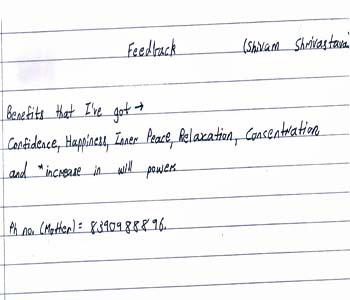 Feedback (Shivam Shrivastava
Benefits that I've got →
Confidence, Happiness, Inner Peace, Relaxation, Concentration
and *increase in will power
Ph no. (Mother) = 8390988896.